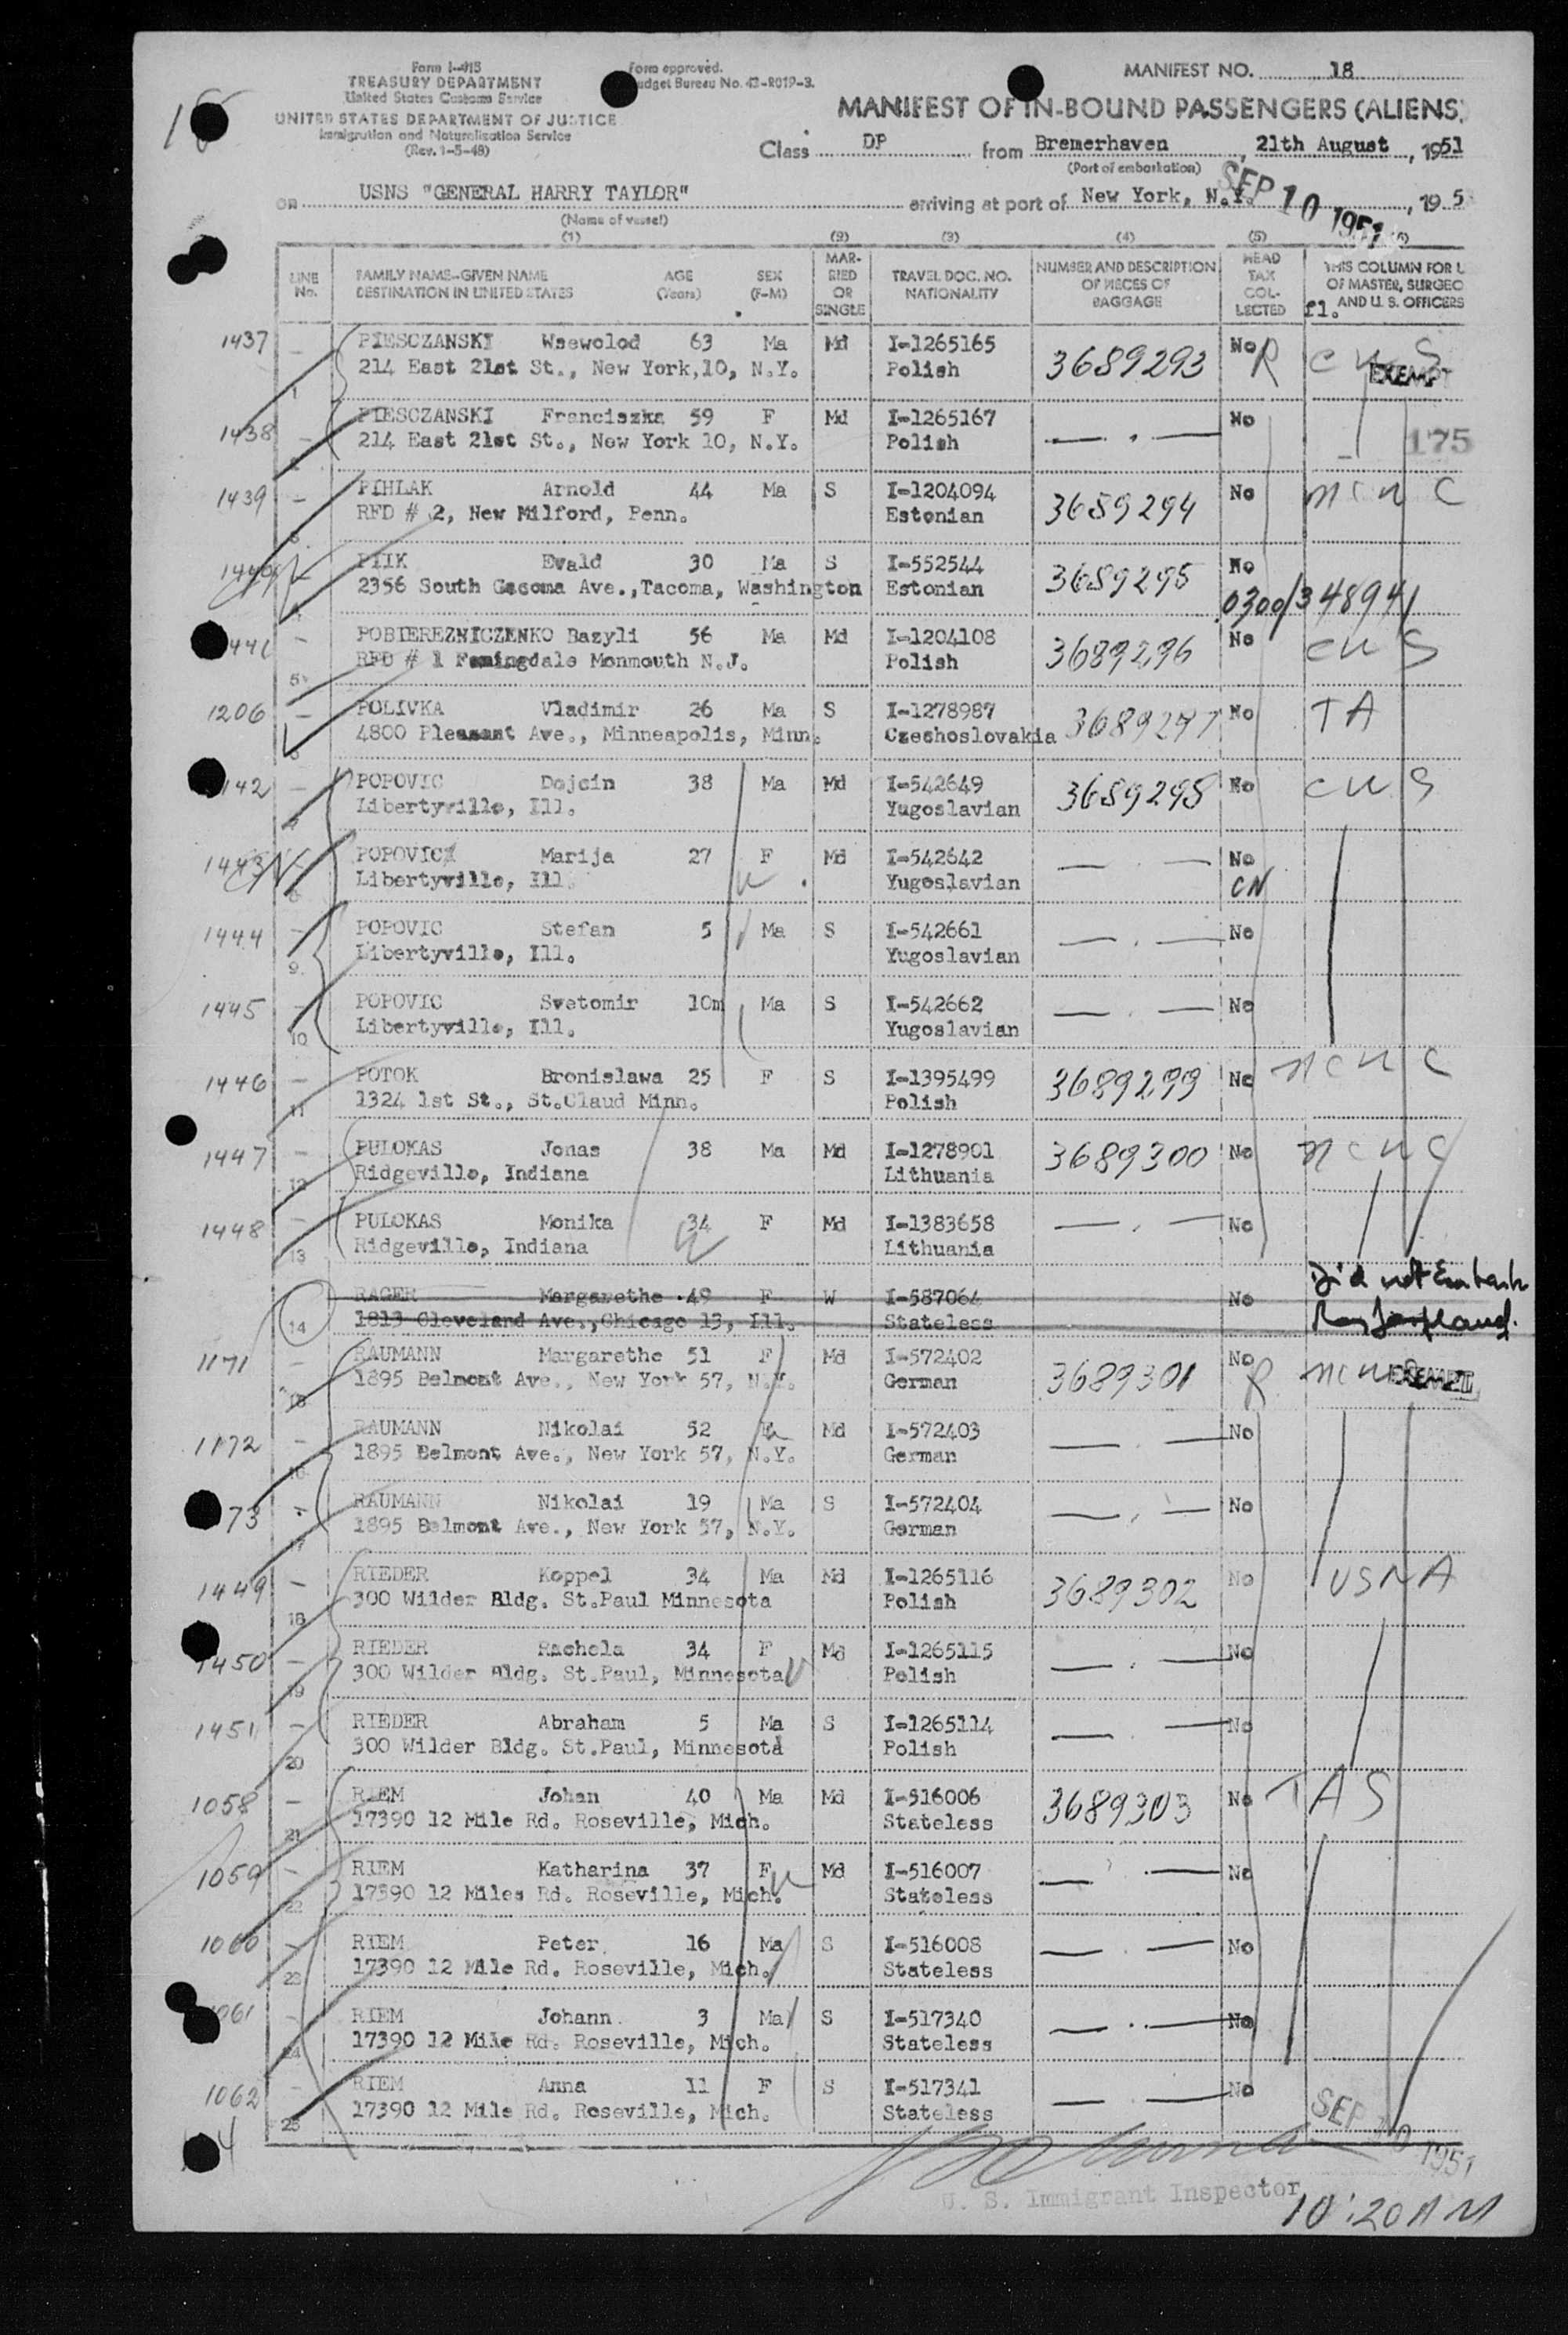 Form I-415
TREASURY DEPARTMENT
United States Customs Service
UNITED STATES DEPARTMENT OF JUSTICE
Immigration and Naturalization Service
(Rev. 1-5-48)
Form approved.
udget Bureau No. 43-R019-3.
MANIFEST NO. 18
MANIFEST OF IN-BOUND PASSENGERS (ALIENS)
Class DP from Bremerhaven, 21th August, 1951
(Port of embarkation)
on USNS "GENERAL HARRY TAYLOR" arriving at port of New York, N.Y. SEP 10 1951, 195
(Name of vessel)
(1) (2) (3) (4) (5) (6)
LINE No. FAMILY NAME–GIVEN NAME DESTINATION IN UNITED STATES AGE (Years) SEX (F-M) MARRIED OR SINGLE TRAVEL DOC. NO. NATIONALITY NUMBER AND DESCRIPTION OF PIECES OF BAGGAGE HEAD TAX COLLECTED THIS COLUMN FOR U OF MASTER, SURGEO AND U. S. OFFICERS
fl.
1437 PIESCZANSKI Wsewolod 63 Ma Md I-1265165 3689293 No R CWS
1 214 East 21st St., New York,10, N.Y. Polish EXEMPT
1438 PIESCZANSKI Franciszka 59 F Md I-1265167 No
214 East 21st St., New York 10, N.Y. Polish 175
1439 PIHLAK Arnold 44 Ma S I-1204094 3689294 No NCWC
RFD # 2, New Milford, Penn. Estonian
1440 PIIK Evald 30 Ma S I-552544 3689295 No
2356 South Gacoma Ave.,Tacoma, Washington Estonian 0300/348941
1441 POBIEREZNICZENKO Bazyli 56 Ma Md I-1204108 3689296 No CWS
5 RFD # 1 Famingdale Monmouth N.J. Polish
1206 POLIVKA Vladimir 26 Ma S I-1278987 3689297 No TA
4800 Pleasant Ave., Minneapolis, Minn. Czechoslovakia
1442 POPOVIC Dojcin 38 Ma Md I-542649 3689298 No CWS
Libertyville, Ill. Yugoslavian
1443 POPOVIC Marija 27 F Md I-542642 No
Libertyville, Ill. Yugoslavian CN
1444 POPOVIC Stefan 5 Ma S I-542661 No
9 Libertyville, Ill. Yugoslavian
1445 POPOVIC Svetomir 10m Ma S I-542662 No
10 Libertyville, Ill. Yugoslavian
1446 POTOK Bronislawa 25 F S I-1395499 3689299 No NCWC
11 1324 1st St., St.Claud Minn. Polish
1447 PULOKAS Jonas 38 Ma Md I-1278901 3689300 No NCWC
12 Ridgeville, Indiana Lithuania
1448 PULOKAS Monika 34 F Md I-1383658 No
13 Ridgeville, Indiana Lithuania
14 RAGER Margarethe 49 F W I-587064 No Did not Embark
1813 Cleveland Ave.,Chicago 13, Ill. Stateless
1171 RAUMANN Margarethe 51 F Md I-572402 3689301 No R NCW EXEMPT
15 1895 Belmont Ave., New York 57, N.Y. German
1172 RAUMANN Nikolai 52 Md I-572403 No
16 1895 Belmont Ave., New York 57, N.Y. German
73 RAUMANN Nikolai 19 Ma S I-572404 No
1895 Belmont Ave., New York 57, N.Y. German
1449 RIEDER Koppel 34 Ma Md I-1265116 3689302 No USNA
18 300 Wilder Bldg. St.Paul Minnesota Polish
1450 RIEDER Rachela 34 F Md I-1265115 No
19 300 Wilder Bldg. St.Paul, Minnesota Polish
1451 RIEDER Abraham 5 Ma S I-1265114 No
20 300 Wilder Bldg. St.Paul, Minnesota Polish
1058 RIEM Johan 40 Ma Md I-516006 3689303 No TAS
21 17390 12 Mile Rd. Roseville, Mich. Stateless
1059 RIEM Katharina 37 F Md I-516007 No
22 17390 12 Miles Rd. Roseville, Mich. Stateless
1060 RIEM Peter 16 Ma S I-516008 No
23 17390 12 Mile Rd. Roseville, Mich. Stateless
1061 RIEM Johann 3 Ma S I-517340 No
24 17390 12 Mile Rd. Roseville, Mich. Stateless
1062 RIEM Anna 11 F S I-517341 No
25 17390 12 Mile Rd. Roseville, Mich. Stateless
SEP 10 1951
U. S. Immigrant Inspector
10:20 AM